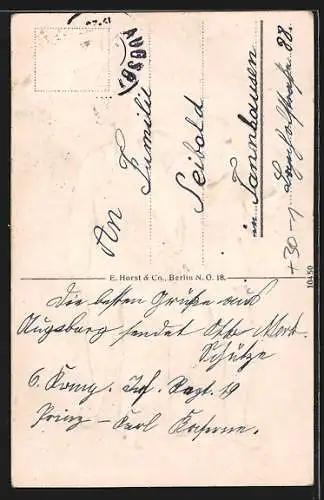 AUGSB
An
Familie
Seibold
in Tannhausen
E. Horst & Co., Berlin N. O. 18.
10450
+30-1
Die besten Grüße aus
Augsburg sendet Otto
Schütze
6. Komp. Inf. Regt. 19
Prinz - Karl Kaserne.